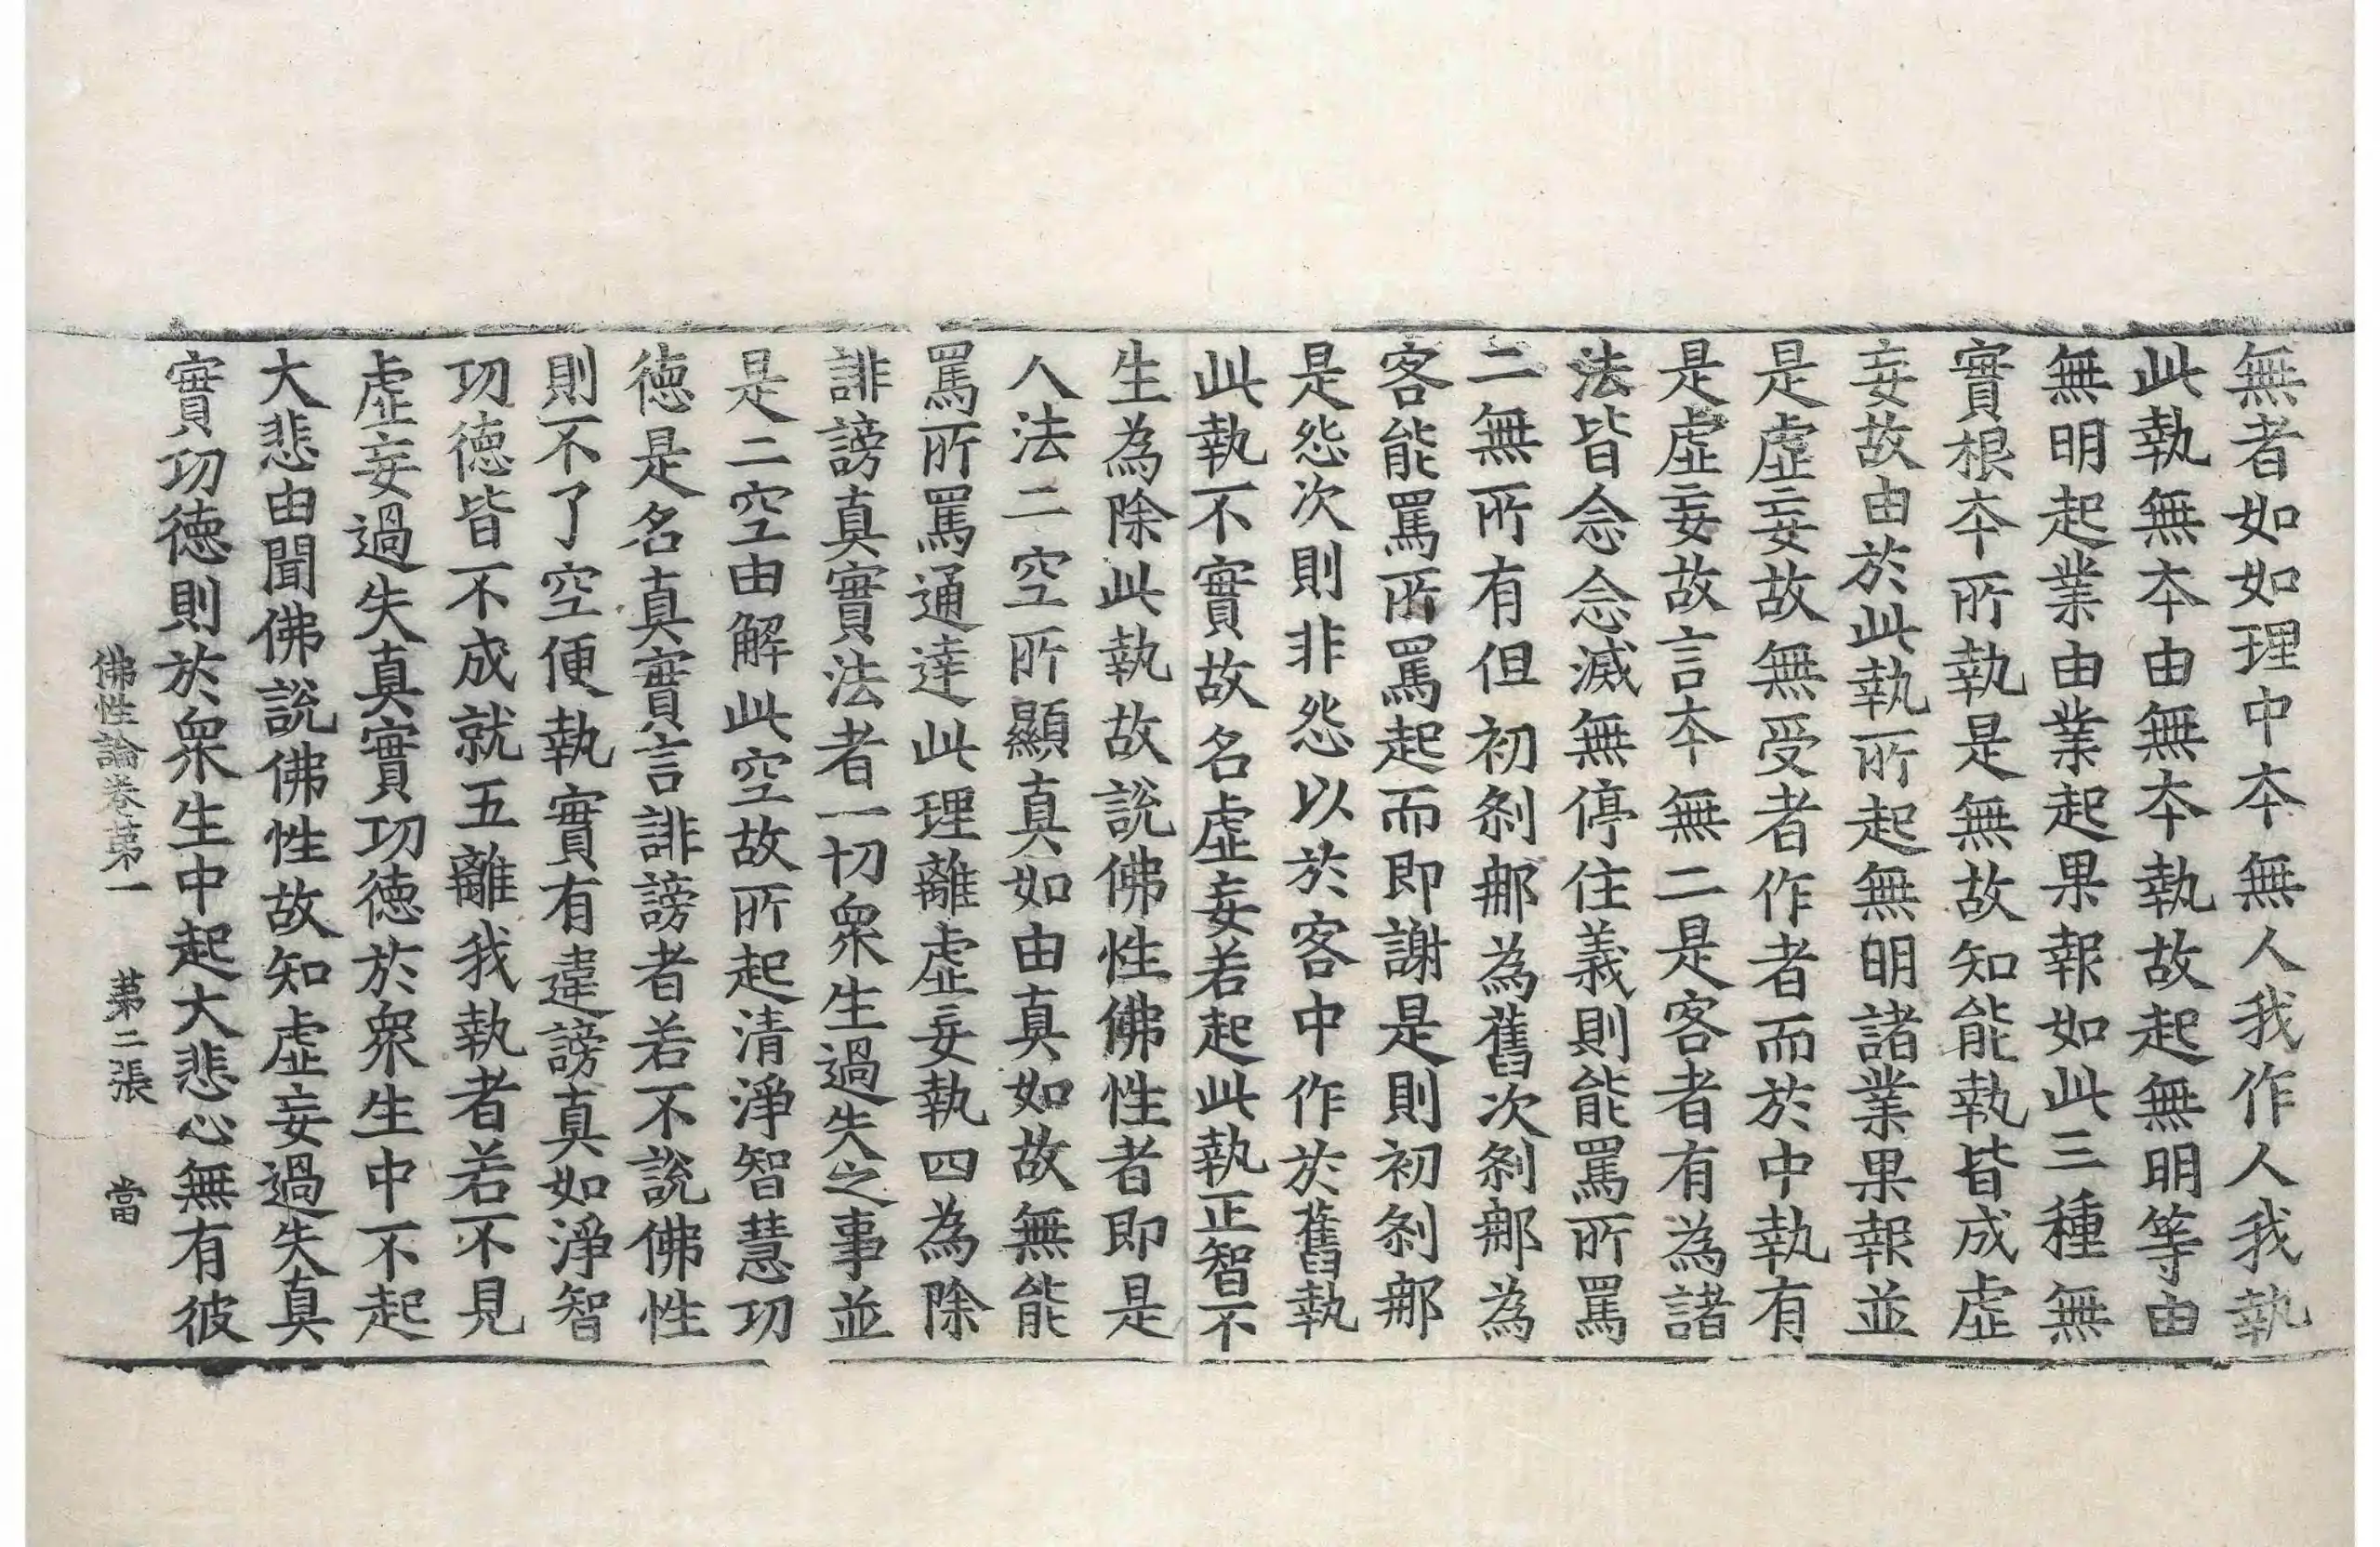 無者如如理中夲無人我作人我執
此執無夲由無夲執故起無明等由
無明起業由業起果報如此三種無
實根夲所執是無故知能執皆成虛
妄故由於此執所起無明諸業果報並
是虛妄故無受者作者而於中執有
是虛妄故言夲無二是客者有為諸
法皆念念滅無停住義則能罵所罵
二無所有但初剎那為舊次剎那為
客能罵所罵起而即謝是則初剎那
是怨次則非怨以於客中作於舊執
此執不實故名虛妄若起此執正智不
生為除此執故說佛性佛性者即是
人法二空所顯真如由真如故無能
罵所罵通達此理離虛妄執四為除
誹謗真實法者一切衆生過失之事並
是二空由解此空故所起清淨智慧功
德是名真實言誹謗者若不說佛性
則不了空便執實有違謗真如淨智
功德皆不成就五離我執者若不見
虛妄過失真實功德於衆生中不起
大悲由聞佛說佛性故知虛妄過失真
實功德則於衆生中起大悲心無有彼
佛性論卷第一 第三張 當